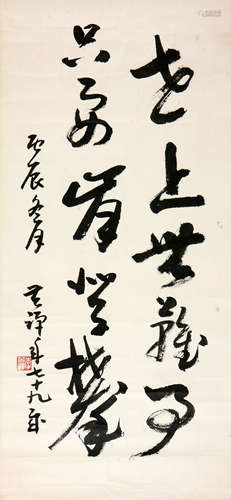 世上無難事
只要肯登攀
丙辰冬月
年七十九歲